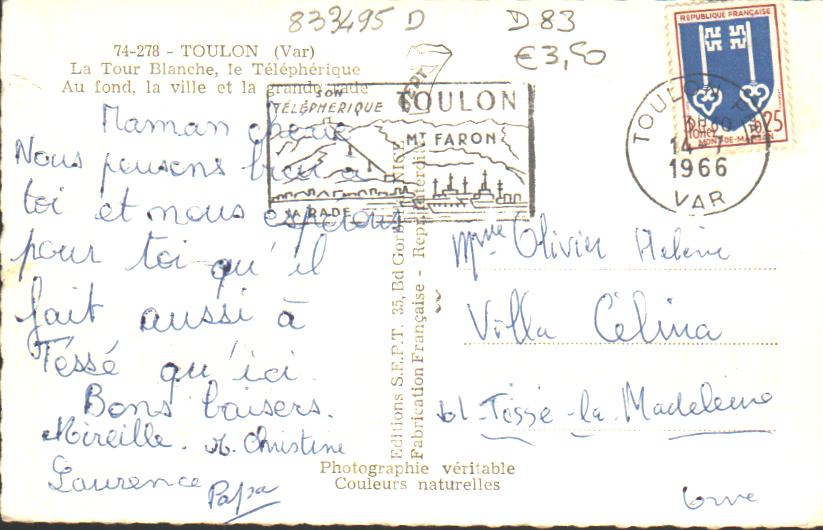 833495 D
D 83
€3,50
74-278 - TOULON (Var)
La Tour Blanche, le Téléphérique
Au fond, la ville et la grande rade
SON
TÉLÉPHERIQUE
TOULON
MT FARON
SA RADE
REPUBLIQUE FRANÇAISE
0,25
MONT-DE-MARSAN
TOULON
14-7
1966
VAR
Maman cherie
Nous pensons bien à
toi et nous espérons
pour toi qu'il
fait aussi à
Tessé qu'ici.
Bons baisers.
Mireille. M. Christine
Laurence Papa
Editions S.E.P.T. 35, Bd Gorbella - NICE
Fabrication Française - Repr. interdite
Mme Olivier Helène
Villa Célina
61-Tessé-la-Madeleine
Orne
Photographie véritable
Couleurs naturelles